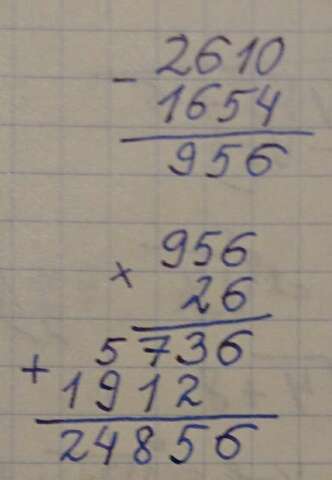 2610
- 1654
956
956
× 26
5736
+ 1912
24856